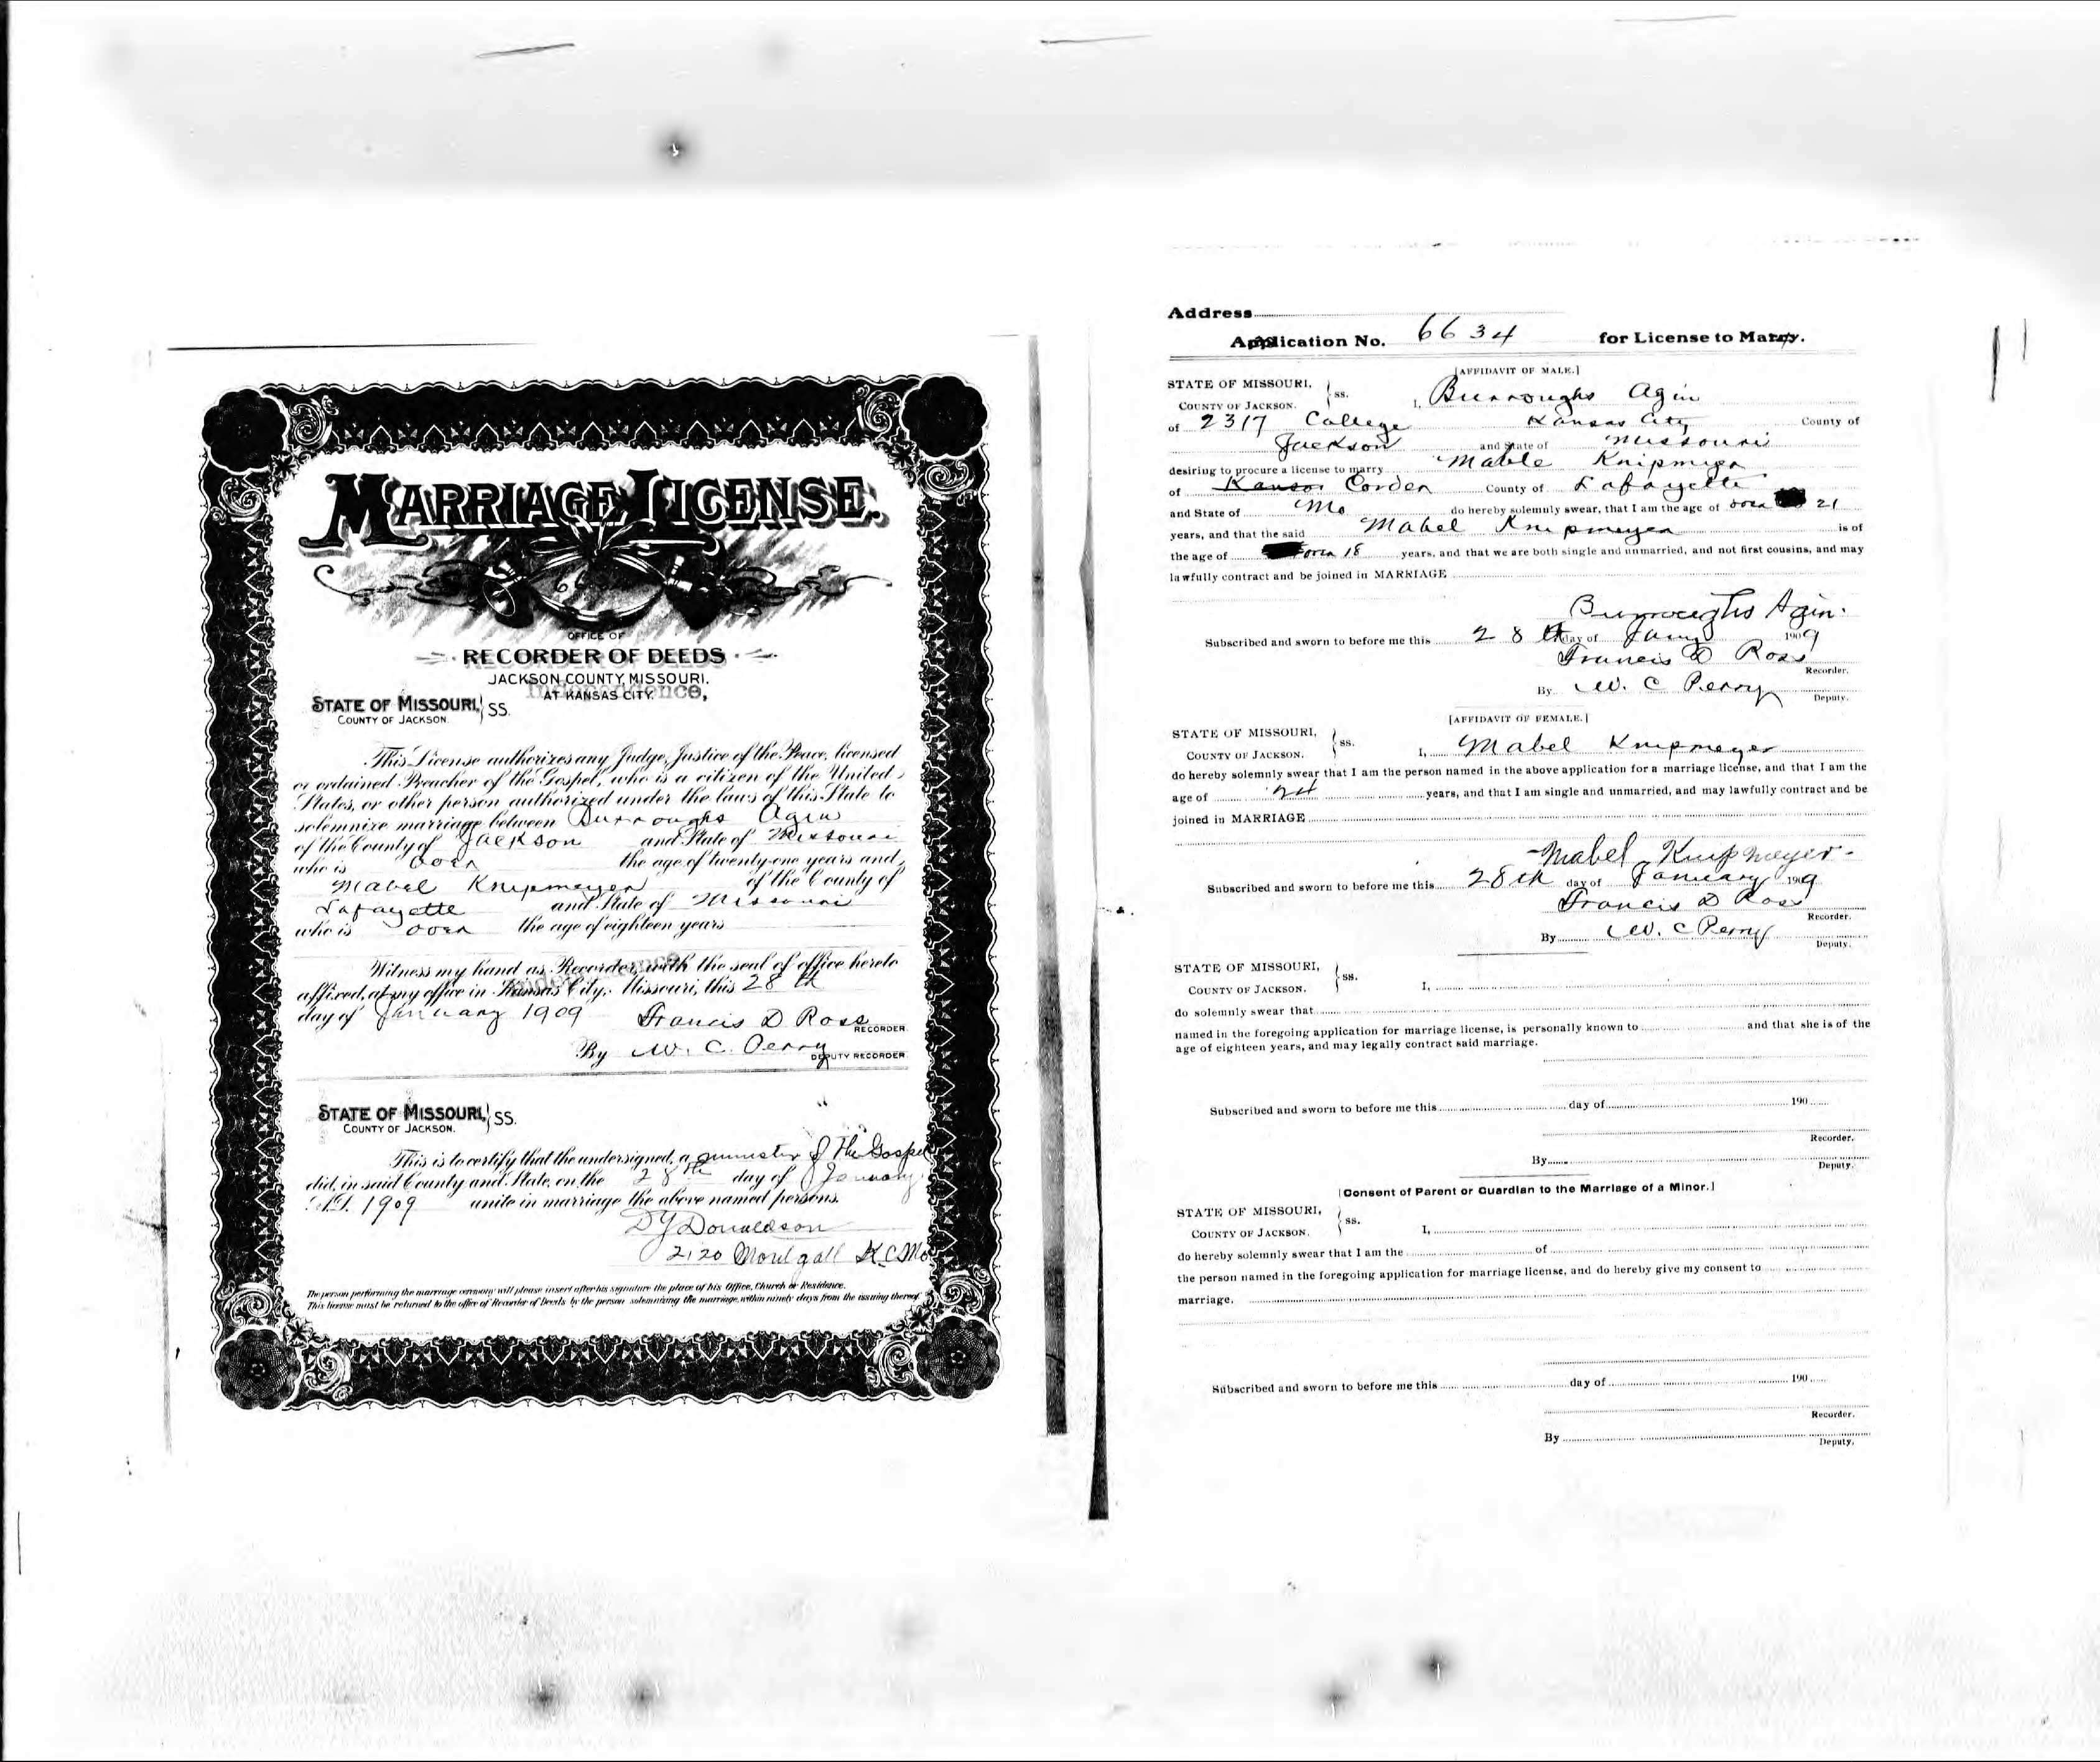 MARRIAGE LICENSE.
66
OFFICE OF
RECORDER OF DEEDS
JACKSON COUNTY, MISSOURI.
AT KANSAS CITY.
Independence,
STATE OF MISSOURI, SS.
COUNTY OF JACKSON.
This License authorizes any Judge, Justice of the Peace, licensed
or ordained Preacher of the Gospel, who is a citizen of the United
States, or other person authorized under the laws of this State to
solemnize marriage between Burroughs Agin
of the County of Jackson and State of Missouri
who is over the age of twenty-one years and
Mabel Knipmeyer of the County of
Lafayette and State of Missouri
who is over the age of eighteen years
Witness my hand as Recorder, with the seal of office hereto
affixed, at my office in Kansas City, Missouri, this 28th
Independence
day of January 1909 Francis D Ross
RECORDER
By W. C. Perry
DEPUTY RECORDER
STATE OF MISSOURI, SS.
COUNTY OF JACKSON.
This is to certify that the undersigned, a minister of the Gospel
did, in said County and State, on the 28th day of January
A.D. 1909 unite in marriage the above named persons.
D Y Donaldson
2120 Montgall K.C. Mo
The person performing the marriage ceremony will please insert after his signature the place of his Office, Church or Residence.
This license must be returned to the office of Recorder of Deeds by the person solemnizing the marriage, within ninety days from the issuing thereof.
Address
Application No. 6634 for License to Marry.
[AFFIDAVIT OF MALE.]
STATE OF MISSOURI, ss.
COUNTY OF JACKSON. I, Burroughs Agin
of 2317 College Kansas City County of
Jackson and State of Missouri
desiring to procure a license to marry Mable Knipmeyer
of Kansas Corder County of Lafayette
and State of Mo do hereby solemnly swear, that I am the age of over 21
years, and that the said Mabel Knipmeyer is of
the age of over 18 years, and that we are both single and unmarried, and not first cousins, and may
lawfully contract and be joined in MARRIAGE
Burroughs Agin.
Subscribed and sworn to before me this 28th day of Jany 1909
Francis D Ross
Recorder.
By W. C Perry
Deputy.
[AFFIDAVIT OF FEMALE.]
STATE OF MISSOURI, ss.
COUNTY OF JACKSON. I, Mabel Knipmeyer
do hereby solemnly swear that I am the person named in the above application for a marriage license, and that I am the
age of 24 years, and that I am single and unmarried, and may lawfully contract and be
joined in MARRIAGE
Mabel Knipmeyer
Subscribed and sworn to before me this 28th day of January 1909
Francis D Ross
Recorder.
By W. C Perry
Deputy.
STATE OF MISSOURI, ss.
COUNTY OF JACKSON. I,
do solemnly swear that
named in the foregoing application for marriage license, is personally known to and that she is of the
age of eighteen years, and may legally contract said marriage.
Subscribed and sworn to before me this day of 190
Recorder.
By
Deputy.
[Consent of Parent or Guardian to the Marriage of a Minor.]
STATE OF MISSOURI, ss.
COUNTY OF JACKSON. I,
do hereby solemnly swear that I am the of
the person named in the foregoing application for marriage license, and do hereby give my consent to
marriage.
Subscribed and sworn to before me this day of 190
Recorder.
By
Deputy.